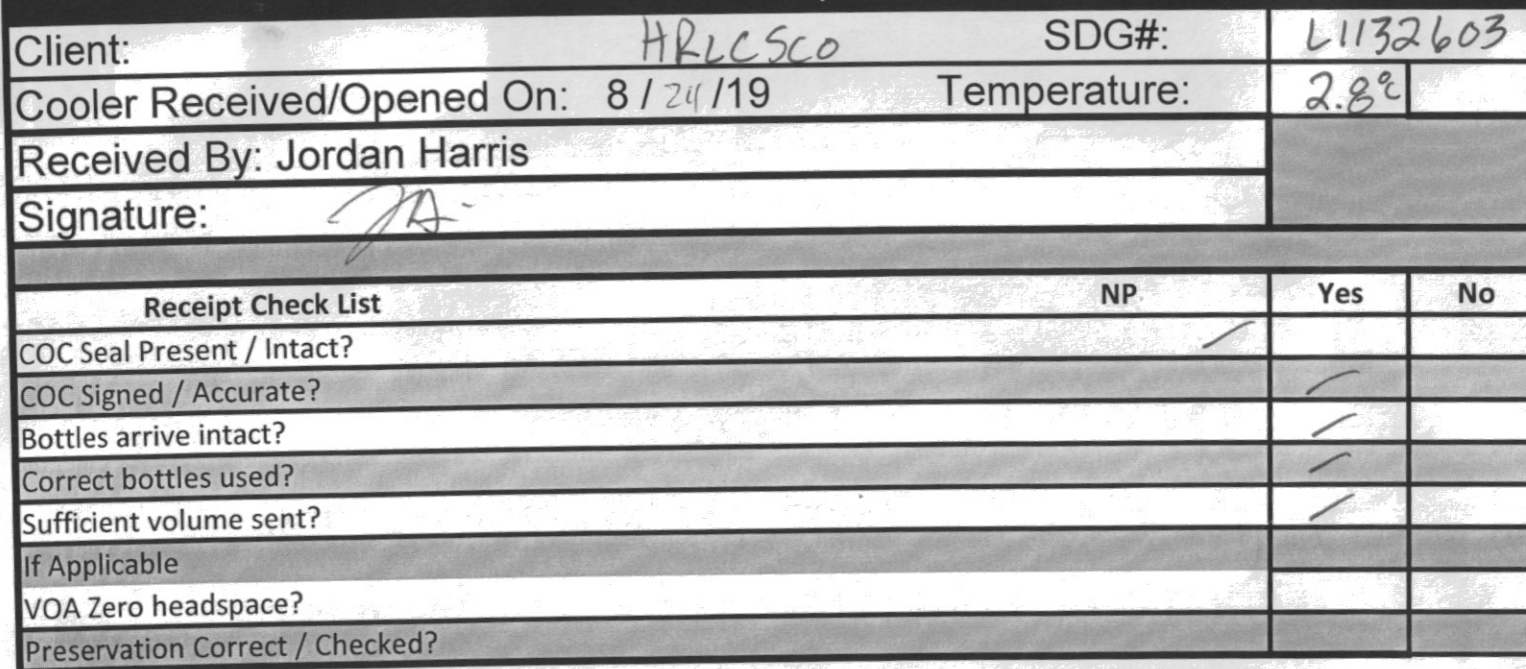 Client: HRLCSCO SDG#: L1132603
Cooler Received/Opened On: 8 / 24 /19 Temperature: 2.8°
Received By: Jordan Harris
Signature: JH
Receipt Check List NP Yes No
COC Seal Present / Intact?
COC Signed / Accurate?
Bottles arrive intact?
Correct bottles used?
Sufficient volume sent?
If Applicable
VOA Zero headspace?
Preservation Correct / Checked?